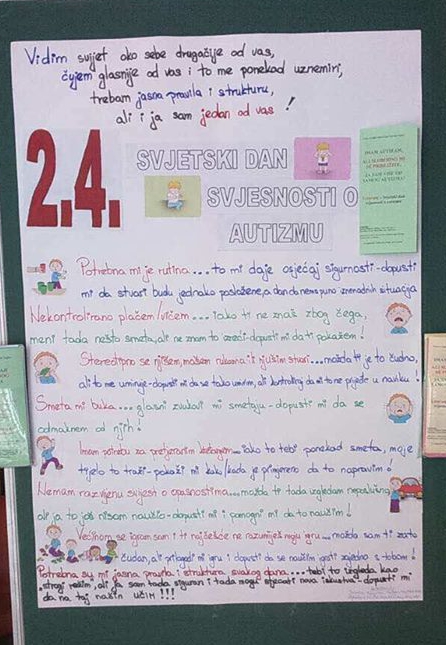 Vidim svijet oko sebe drugačije od vas,
čujem glasnije od vas i to me ponekad uznemiri,
trebam jasna pravila i strukturu,
ali i ja sam jedan od vas !
2.4.
SVJETSKI DAN
SVJESNOSTI O
AUTIZMU
IMAM AUTIZAM,
Potrebna mi je rutina... to mi daje osjećaj sigurnosti - dopusti
mi da stvari budu jednako posložene, a dan da nema puno iznenadnih situacija
Nekontrolirano plačem/vičem... iako ti ne znaš zbog čega,
meni tada nešto smeta, ali ne znam to izreći - dopusti mi da ti pokažem !
Stereotipno se njišem, mašem rukama ili njušim stvari... možda ti je to čudno,
ali to me umiruje - dopusti mi da se tako umirim, ali kontroliraj da mi to ne prijeđe u naviku !
Smeta mi buka... glasni zvukovi mi smetaju - dopusti mi da se
odmaknem od njih !
Imam potrebu za pretjeranim kretanjem... iako to tebi ponekad smeta, moje
tijelo to traži - pokaži mi kako/kada je primjereno da to napravim !
Nemam razvijenu svijest o opasnostima... možda ti tada izgledam neposlušno,
ali ja to još nisam naučio - dopusti mi i pomogni mi da to naučim !
Većinom se igram sam i ti najčešće ne razumiješ moju igru... možda sam ti zato
čudan, ali prilagodi mi igru i dopusti da se naučim igrati zajedno s tobom !
Potrebna su mi jasna pravila i struktura svakog dana... tebi to izgleda kao
strogi režim, ali ja sam tada siguran i tada mogu stjecati nova iskustva - dopusti mi
da na taj način učim !!!